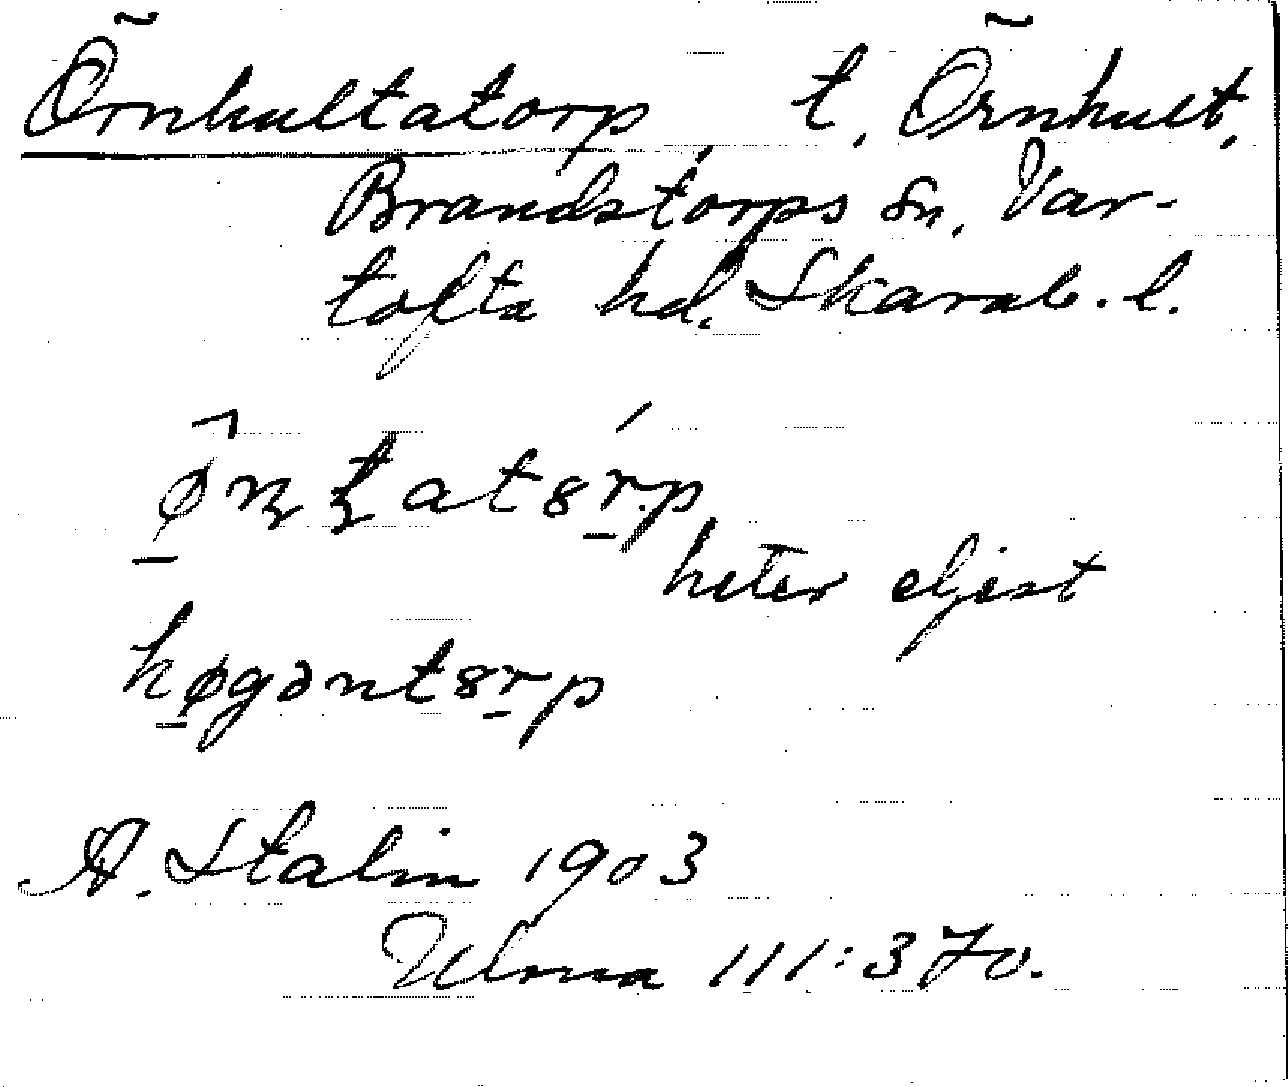 Örnhultatorp, t. Örnhult,
Brandstorps sn, Var-
tofta hd, Skarab. l.
heter eljest
høgəntɞrp
A. Stalin 1903
Ulma 111:370.